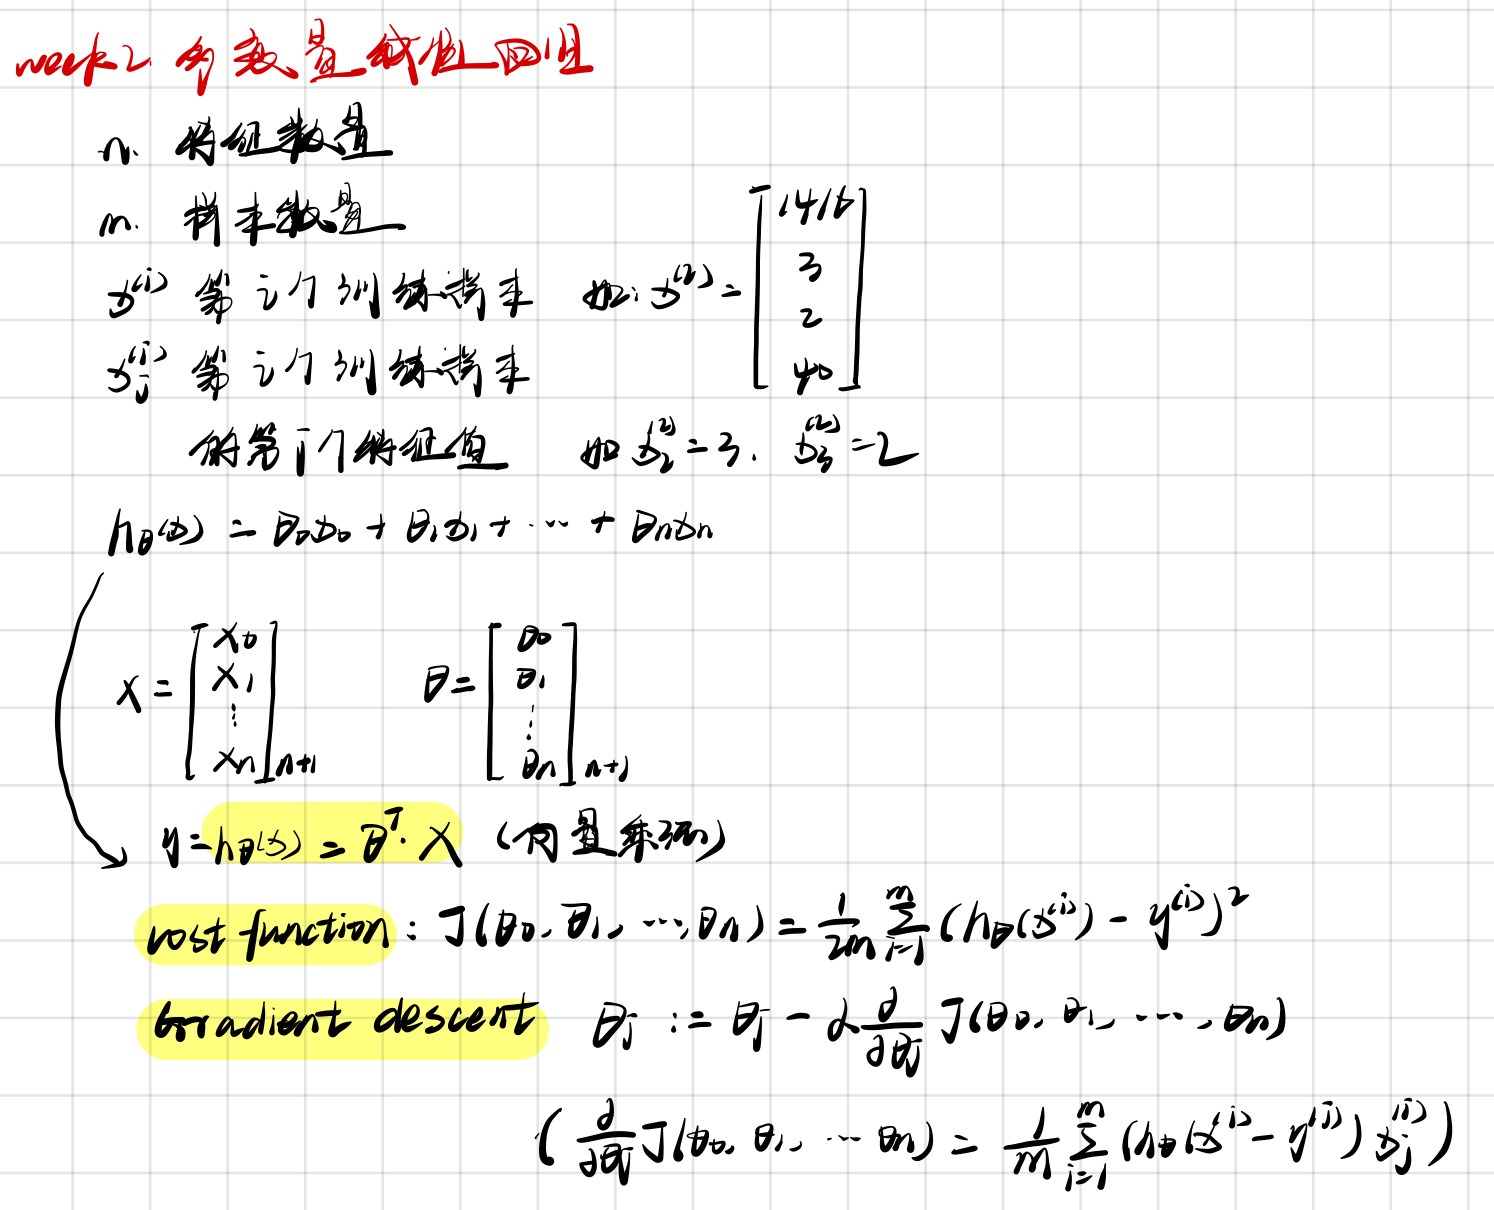 week2. 多变量线性回归
n. 特征数量
m. 样本数量
x⁽ⁱ⁾ 第 i 个训练样本 如: x⁽²⁾ = [1416 3 2 40]
xⱼ⁽ⁱ⁾ 第 i 个训练样本
的第 j 个特征值 如 x₂⁽²⁾ = 3. x₃⁽²⁾ = 2
h_θ(x) = θ₀x₀ + θ₁x₁ + ... + θₙxₙ
X = [x₀ x₁ ⋮ xₙ]ₙ₊₁ θ = [θ₀ θ₁ ⋮ θₙ]ₙ₊₁
y = h_θ(x) = θᵀ · X (向量乘法)
cost function : J(θ₀, θ₁, ..., θₙ) = 1/2m Σᵢ₌₁ᵐ (h_θ(x⁽ⁱ⁾) - y⁽ⁱ⁾)²
Gradient descent θⱼ := θⱼ - α ∂/∂θⱼ J(θ₀, θ₁, ..., θₙ)
( ∂/∂θⱼ J(θ₀, θ₁, ... θₙ) = 1/m Σᵢ₌₁ᵐ (h_θ(x⁽ⁱ⁾ - y⁽ⁱ⁾) xⱼ⁽ⁱ⁾ )